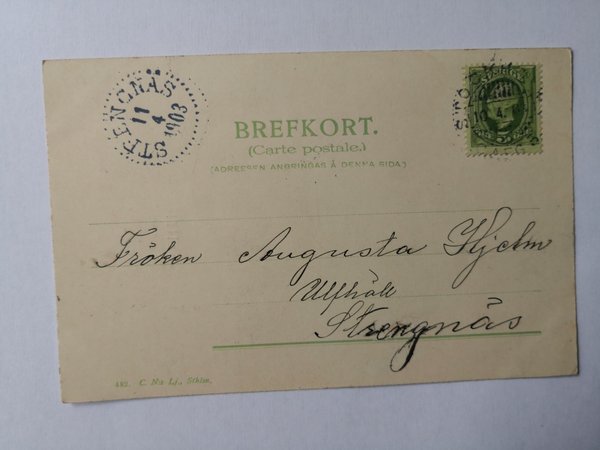 STRENGNÄS
11
4
1903
BREFKORT.
(Carte postale.)
(ADRESSEN ANBRINGAS Å DENNA SIDA.)
Fröken Augusta Hjelm
Ulfhäll
Strengnäs
C. N:s Lj., Sthlm.